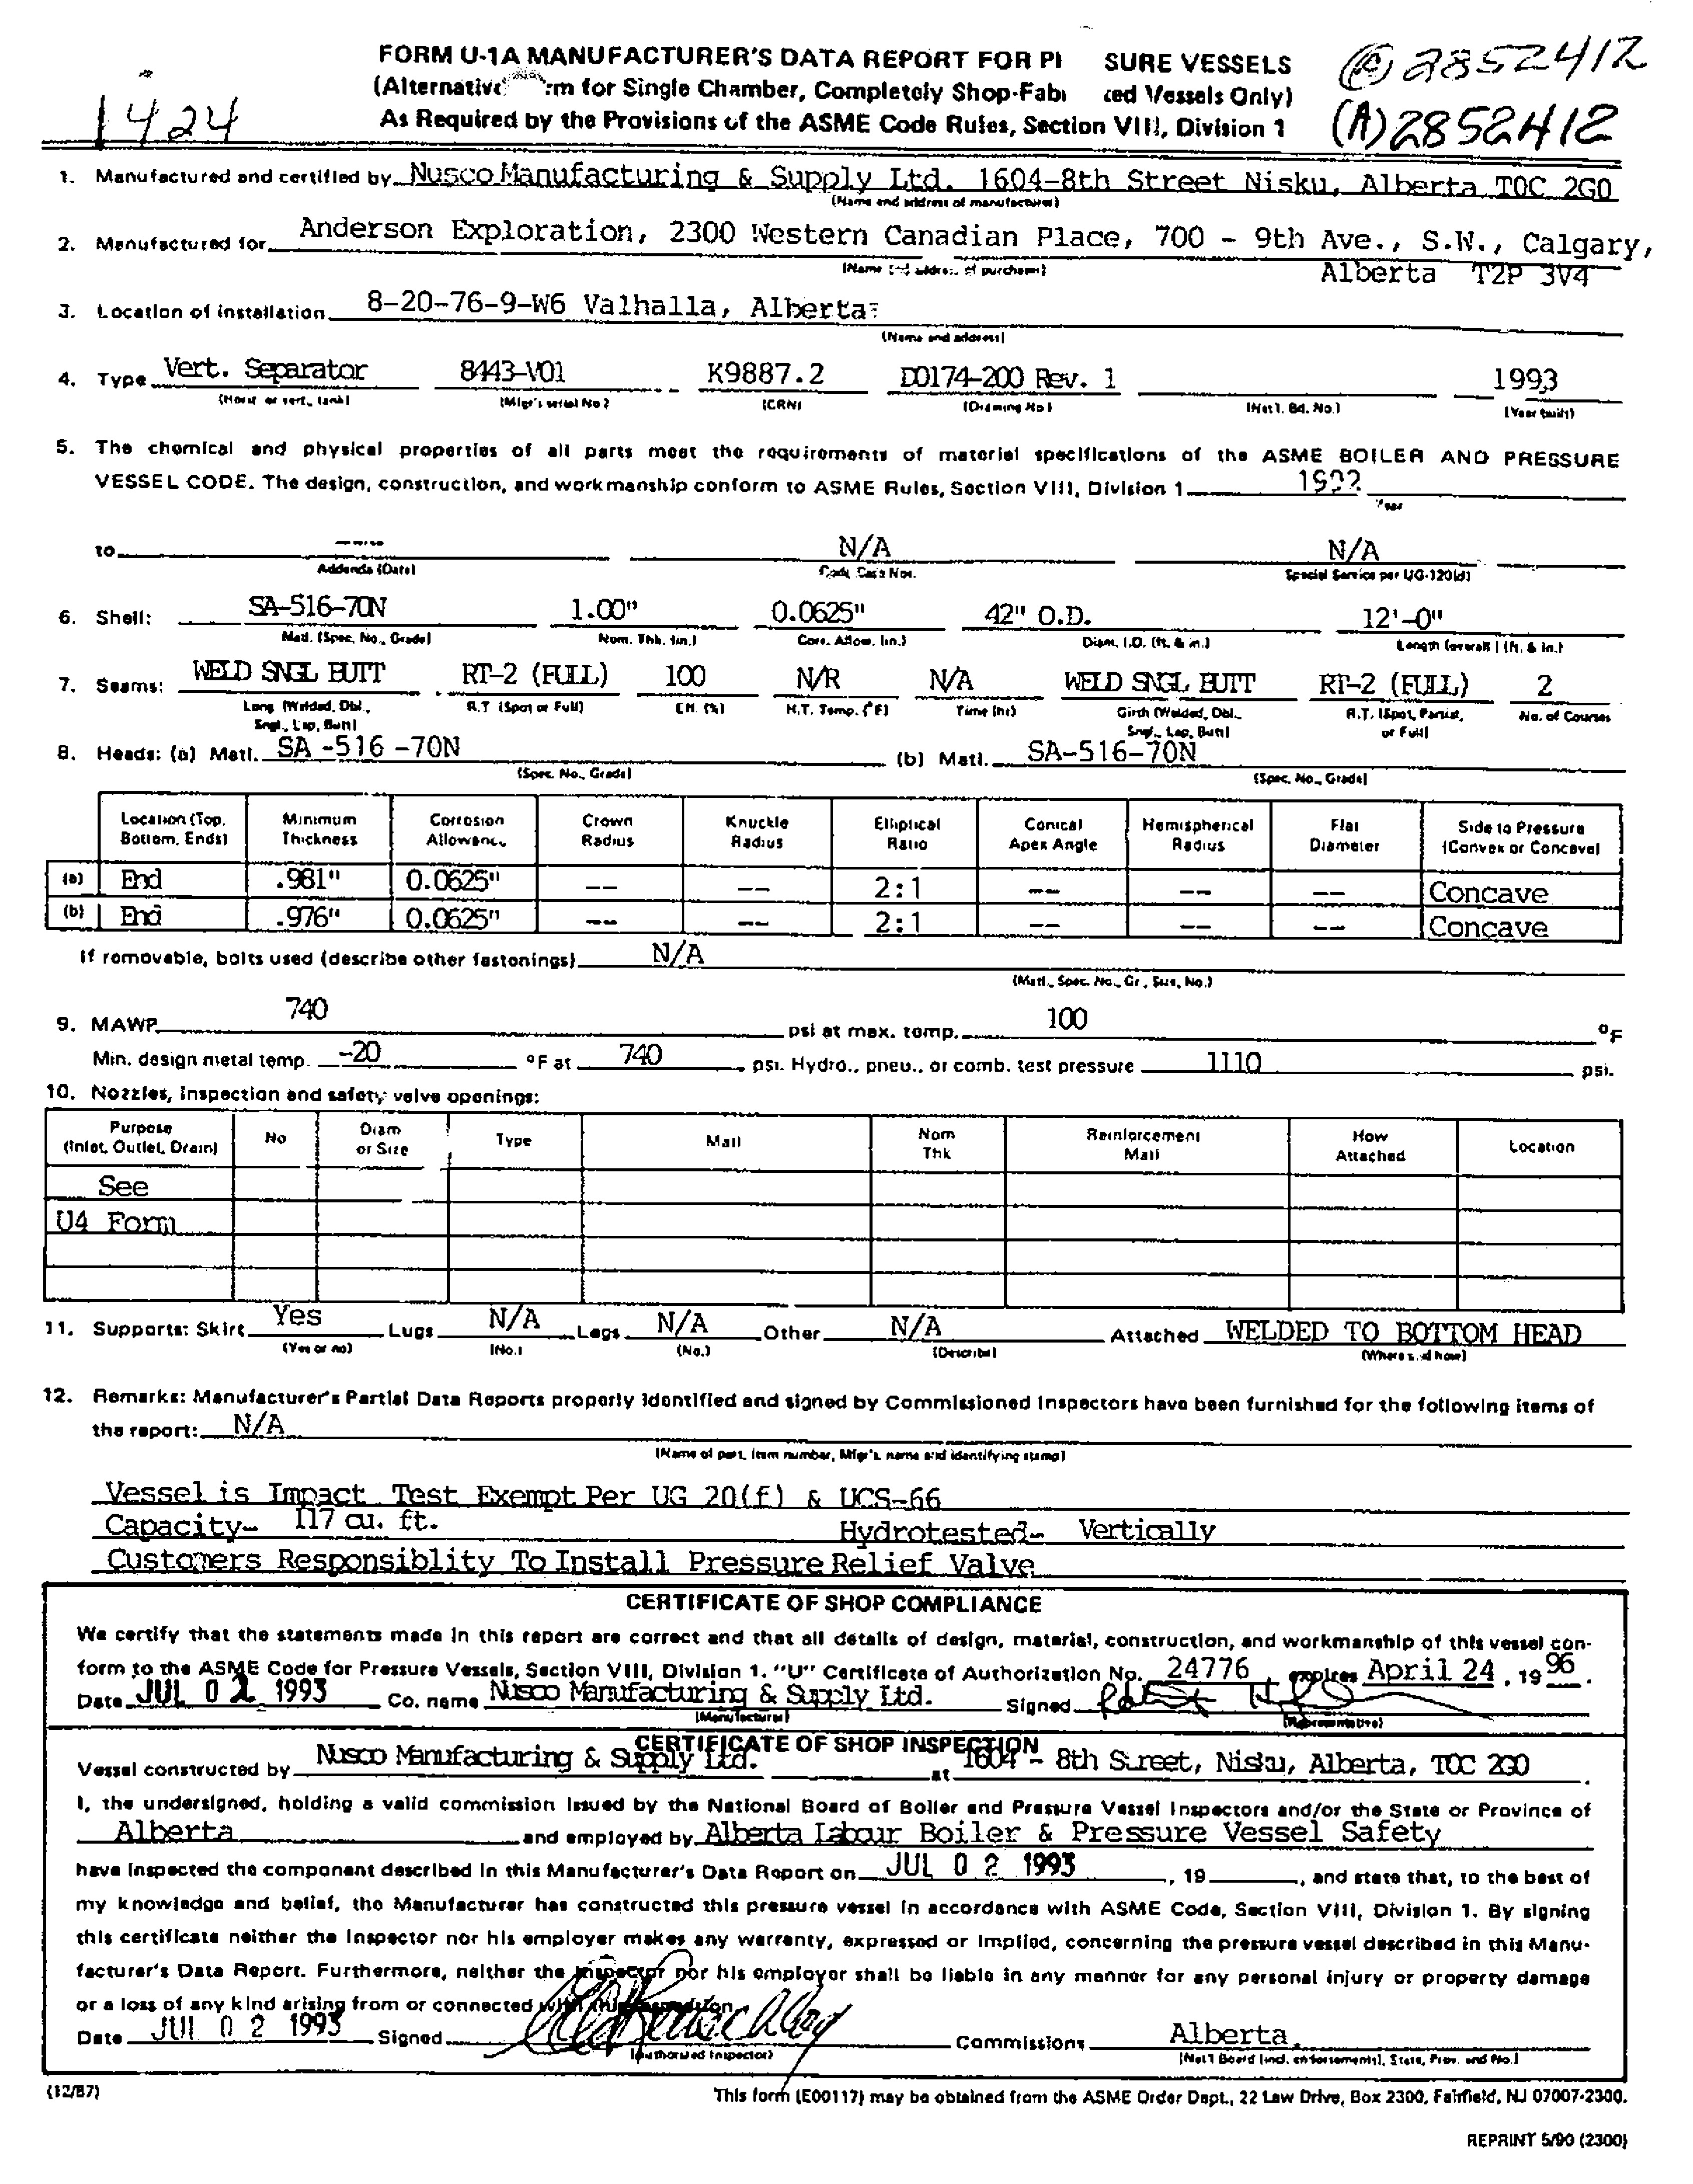 FORM U-1A MANUFACTURER'S DATA REPORT FOR PI SURE VESSELS
(Alternative rm for Single Chamber, Completely Shop-Fab ted Vessels Only)
As Required by the Provisions of the ASME Code Rules, Section VIII, Division 1
1424
(A) 2852412
(A) 2852412
1. Manufactured and certified by Nusco Manufacturing & Supply Ltd. 1604-8th Street Nisku, Alberta T0C 2G0
(Name and address of manufacturer)
2. Manufactured for Anderson Exploration, 2300 Western Canadian Place, 700 - 9th Ave., S.W., Calgary,
(Name and address of purchaser) Alberta T2P 3V4
3. Location of installation 8-20-76-9-W6 Valhalla, Alberta
(Name and address)
4. Type Vert. Separator 8443-V01 K9887.2 D0174-200 Rev. 1 1993
(Horiz. or vert., tank) (Mfgr's serial No.) (CRN) (Drawing No.) (Nat'l. Bd. No.) (Year built)
5. The chemical and physical properties of all parts meet the requirements of material specifications of the ASME BOILER AND PRESSURE
VESSEL CODE. The design, construction, and workmanship conform to ASME Rules, Section VIII, Division 1 1992
Year
to ---- N/A N/A
Addenda (Date) Code Case Nos. Special Service per UG-120(d)
6. Shell: SA-516-70N 1.00" 0.0625" 42" O.D. 12'-0"
Matl. (Spec. No., Grade) Nom. Thk. (in.) Corr. Allow. (in.) Diam. I.D. (ft. & in.) Length (overall) (ft. & in.)
7. Seams: WELD SNGL BUTT RT-2 (FULL) 100 N/R N/A WELD SNGL BUTT RT-2 (FULL) 2
Long. (Welded, Dbl., R.T. (Spot or Full) Eff. (%) H.T. Temp. (°F) Time (hr) Girth (Welded, Dbl., R.T. (Spot, Partial, No. of Courses
Sngl., Lap, Butt) Sngl., Lap, Butt) or Full)
8. Heads: (a) Matl. SA -516 -70N (b) Matl. SA-516-70N
(Spec. No., Grade) (Spec. No., Grade)
Location (Top, Minimum Corrosion Crown Knuckle Elliptical Conical Hemispherical Flat Side to Pressure
Bottom, Ends) Thickness Allowance Radius Radius Ratio Apex Angle Radius Diameter (Convex or Concave)
(a) End .981" 0.0625" -- -- 2:1 -- -- -- Concave
(b) End .976" 0.0625" -- -- 2:1 -- -- -- Concave
If removable, bolts used (describe other fastenings) N/A
(Matl., Spec. No., Gr., Size, No.)
9. MAWP 740 psi at max. temp. 100 °F
Min. design metal temp. -20 °F at 740 psi. Hydro., pneu., or comb. test pressure 1110 psi.
10. Nozzles, inspection and safety valve openings:
Purpose No Diam Type Matl Nom Reinforcement How Location
(Inlet, Outlet, Drain) or Size Thk Matl Attached
See
U4 Form
11. Supports: Skirt Yes Lugs N/A Legs N/A Other N/A Attached WELDED TO BOTTOM HEAD
(Yes or no) (No.) (No.) (Describe) (Where and how)
12. Remarks: Manufacturer's Partial Data Reports properly identified and signed by Commissioned Inspectors have been furnished for the following items of
the report: N/A
(Name of part, item number, Mfgr's. name and identifying stamp)
Vessel is Impact Test Exempt Per UG 20(f) & UCS-66
Capacity- 117 cu. ft. Hydrotested- Vertically
Customers Responsiblity To Install Pressure Relief Valve
CERTIFICATE OF SHOP COMPLIANCE
We certify that the statements made in this report are correct and that all details of design, material, construction, and workmanship of this vessel con-
form to the ASME Code for Pressure Vessels, Section VIII, Division 1. "U" Certificate of Authorization No. 24776 expires April 24, 19 96.
Date JUL 0 2 1993 Co. name Nusco Manufacturing & Supply Ltd. Signed
(Manufacturer) (Representative)
CERTIFICATE OF SHOP INSPECTION
Vessel constructed by Nusco Manufacturing & Supply Ltd. at 1604 - 8th Street, Nisku, Alberta, T0C 2G0.
I, the undersigned, holding a valid commission issued by the National Board of Boiler and Pressure Vessel Inspectors and/or the State or Province of
Alberta and employed by Alberta Labour Boiler & Pressure Vessel Safety
have inspected the component described in this Manufacturer's Data Report on JUL 0 2 1993, 19, and state that, to the best of
my knowledge and belief, the Manufacturer has constructed this pressure vessel in accordance with ASME Code, Section VIII, Division 1. By signing
this certificate neither the Inspector nor his employer makes any warranty, expressed or implied, concerning the pressure vessel described in this Manu-
facturer's Data Report. Furthermore, neither the Inspector nor his employer shall be liable in any manner for any personal injury or property damage
or a loss of any kind arising from or connected with this inspection.
Date JUL 0 2 1993 Signed Commissions Alberta
(Authorized Inspector) (Nat'l Board (incl. endorsements), State, Prov. and No.)
(12/87) This form (E00117) may be obtained from the ASME Order Dept., 22 Law Drive, Box 2300, Fairfield, NJ 07007-2300.
REPRINT 5/90 (2300)